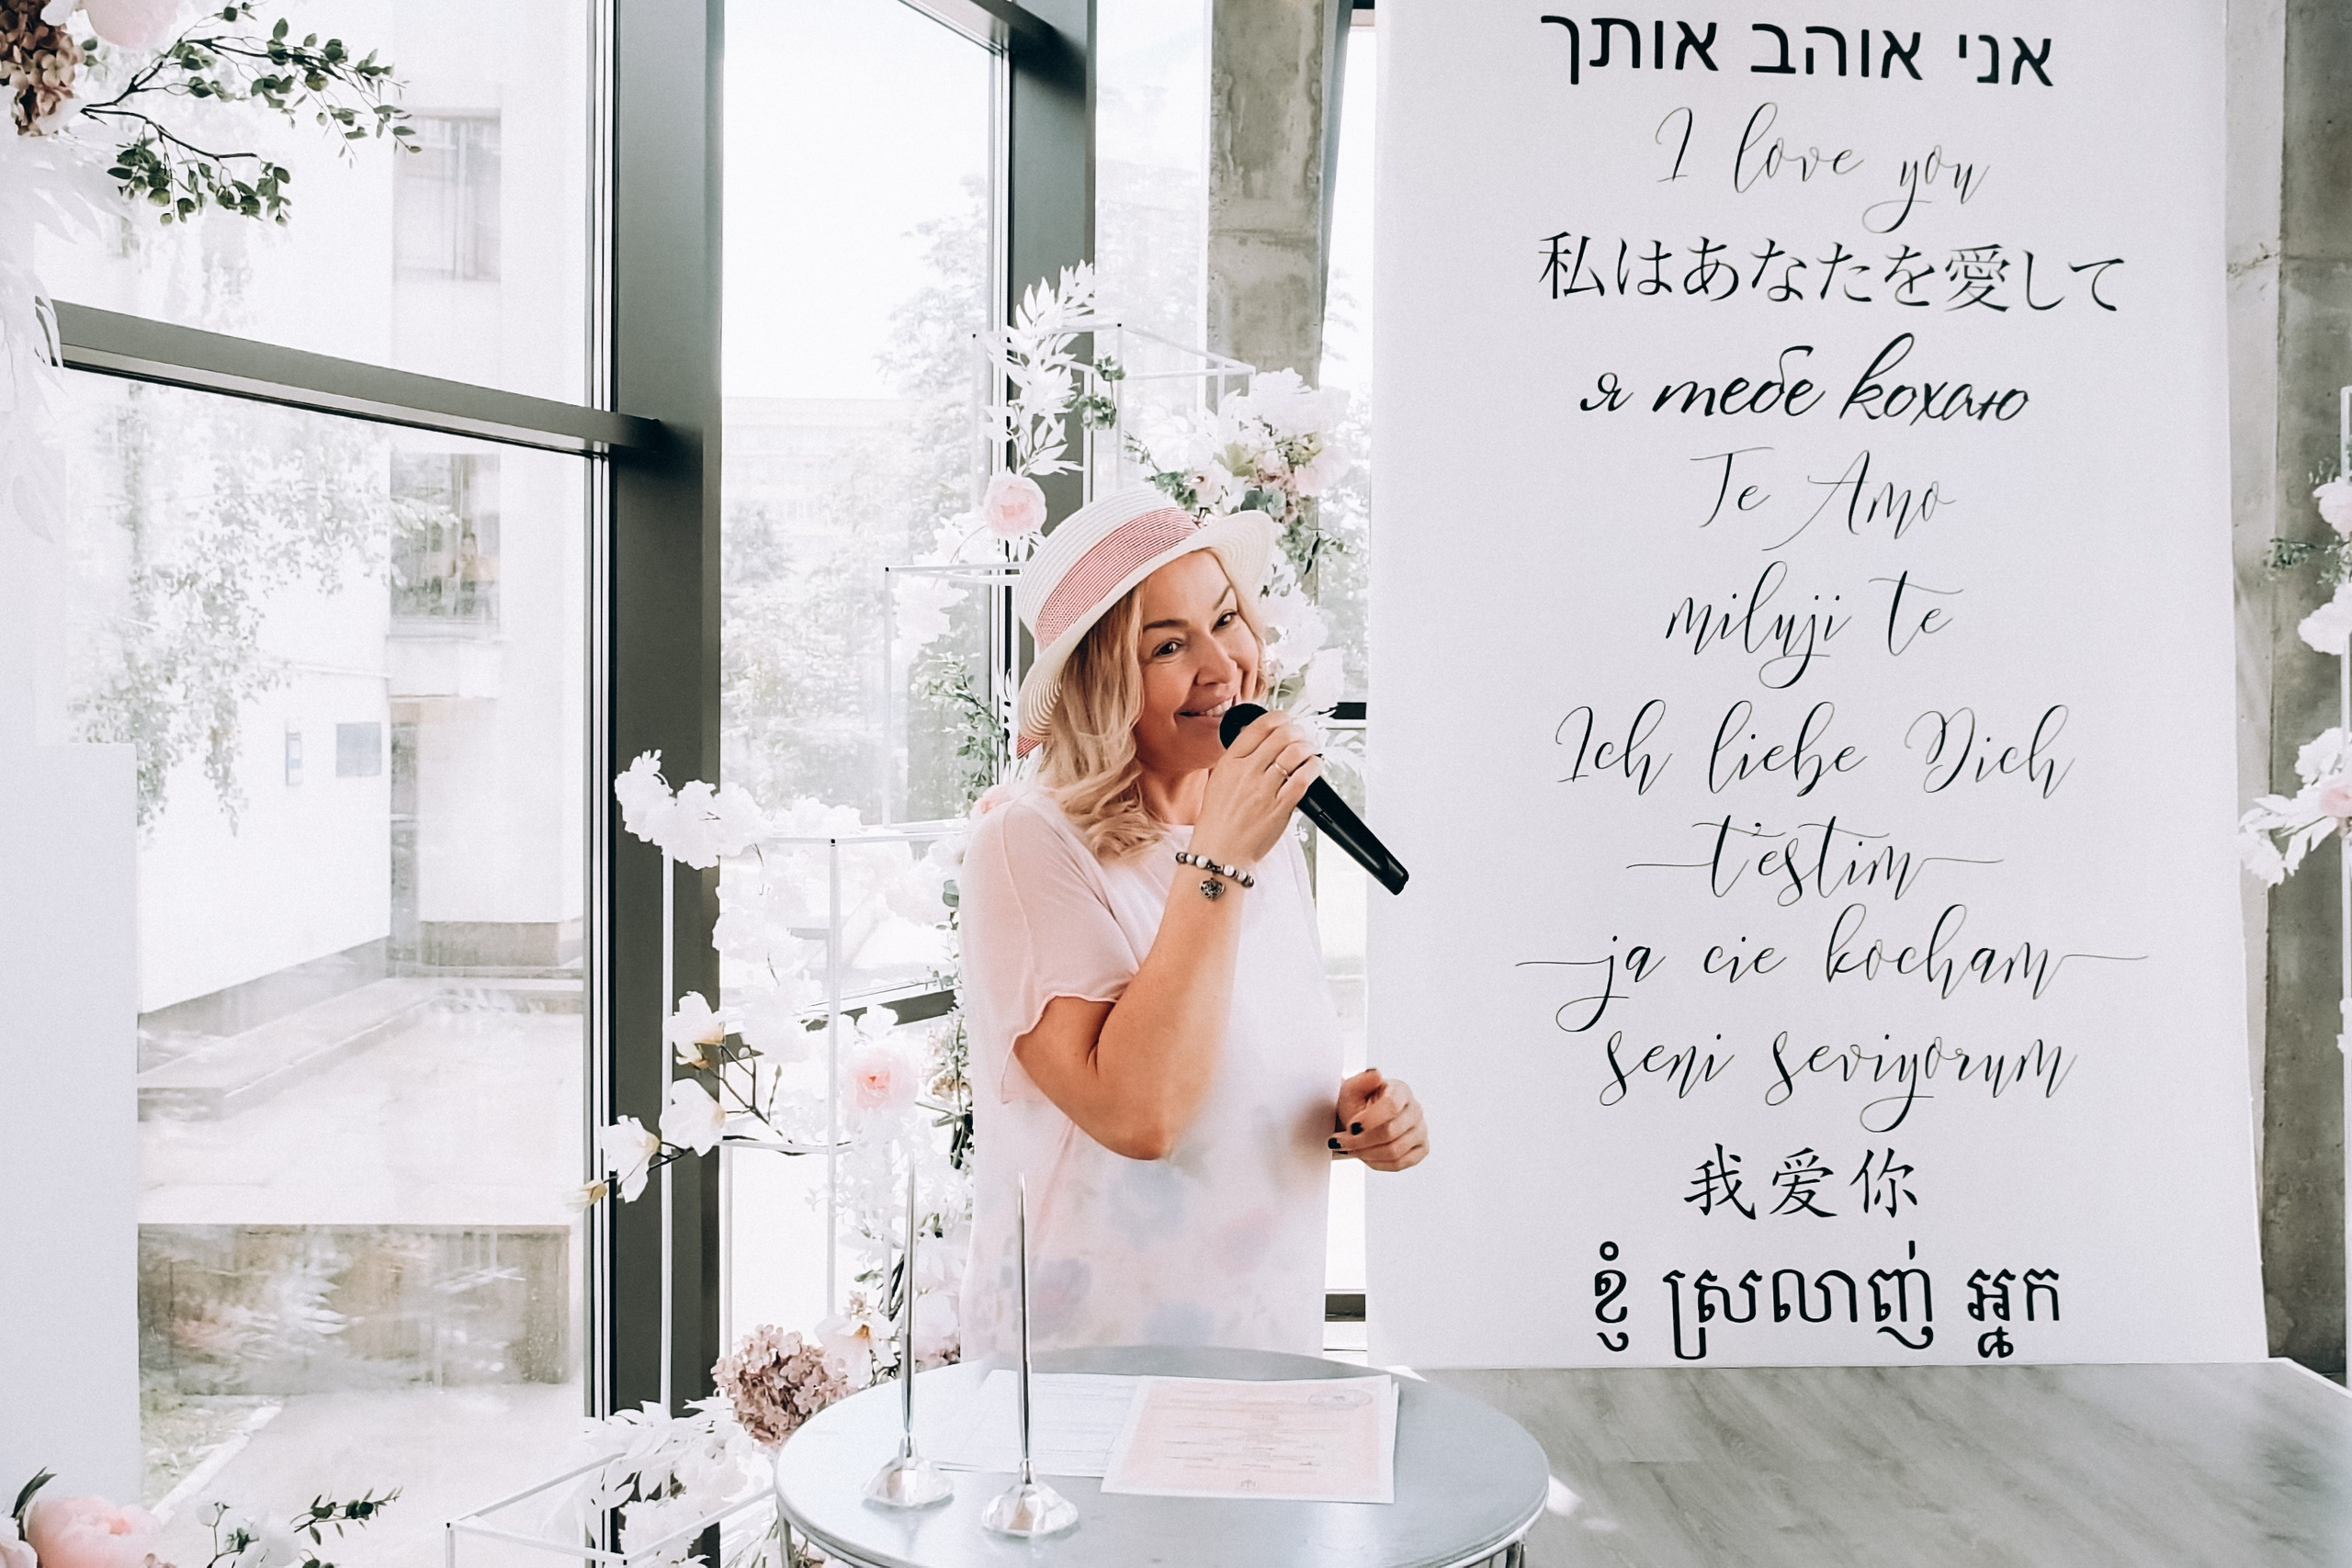 אני אוהב אותך
I love you
私はあなたを愛して
я тебе кохаю
Te Amo
miluji te
Ich liebe Dich
t'estim
ja cie kocham
seni seviyorum
我爱你
ខ្ញុំ ស្រលាញ់ អ្នក